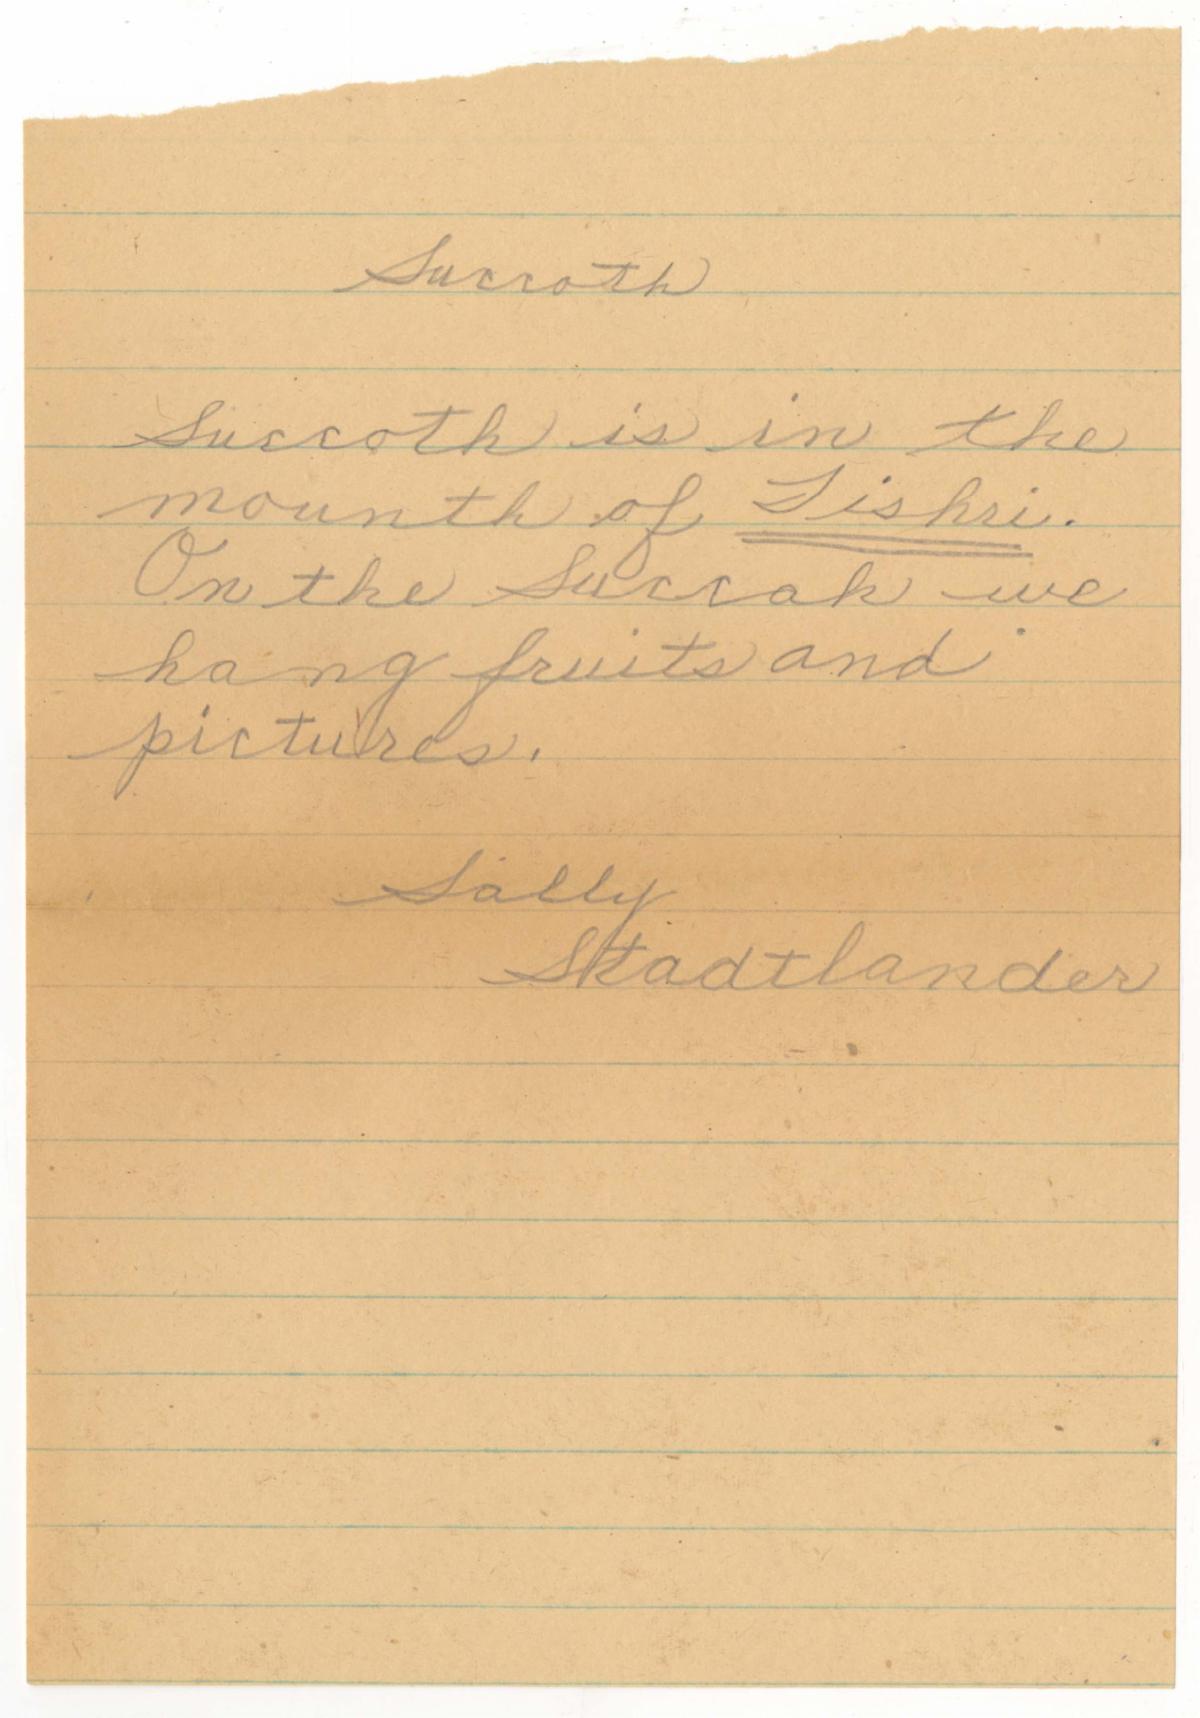 Succoth
Succoth is in the
mounth of Tishri.
On the Succah we
hang fruits and
pictures.
Sally
Stadtlander